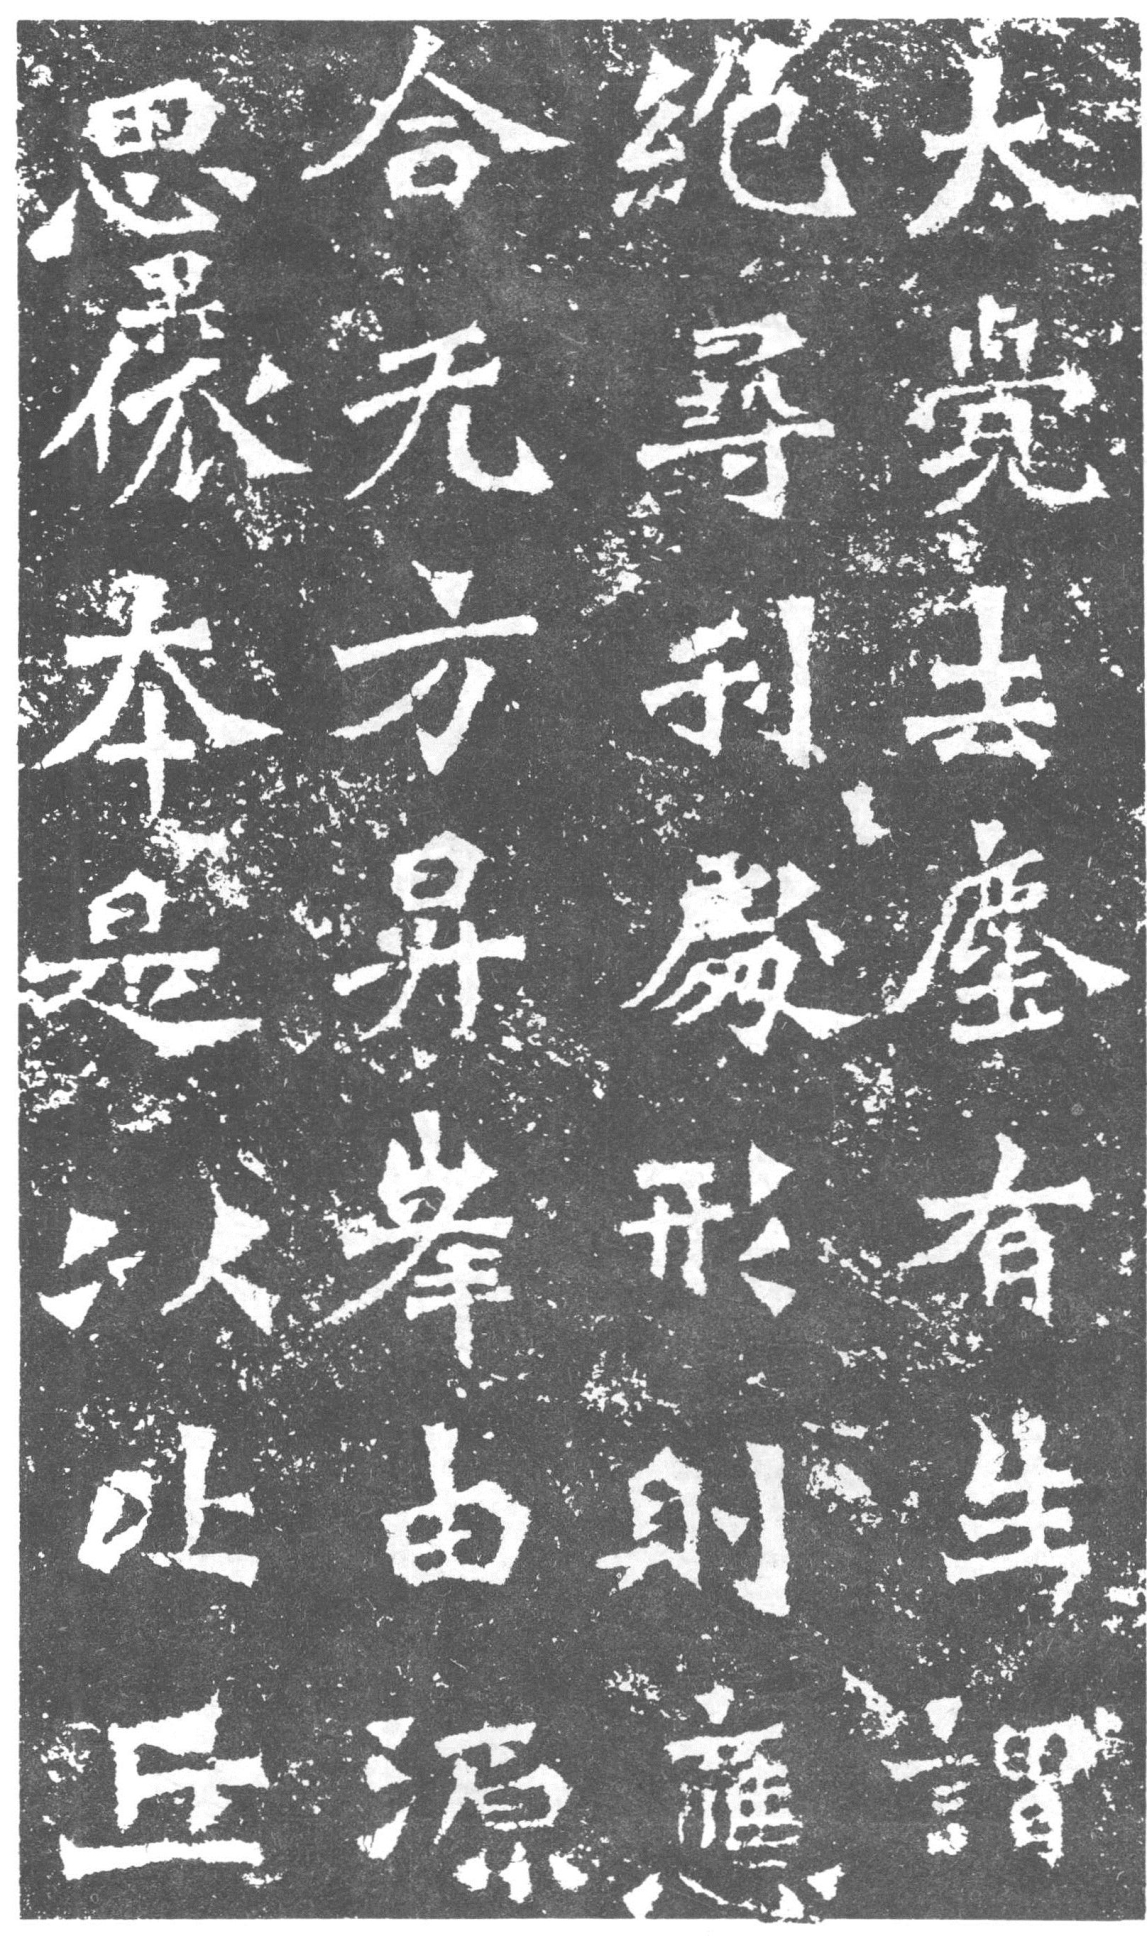 大覺去塵有生謂
絕尋利處形則應
合无方昇峯由源
思本是以比丘